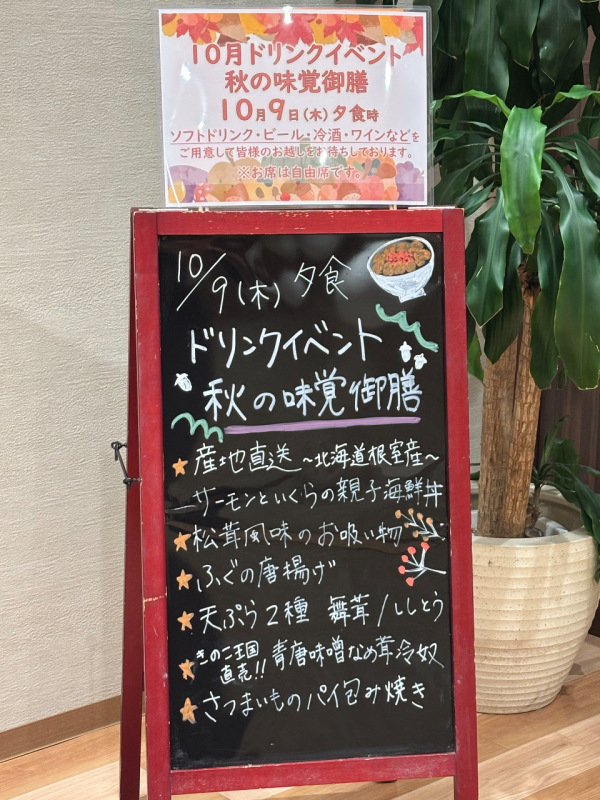 10月ドリンクイベント
秋の味覚御膳
10月9日(木)夕食時
ソフトドリンク・ビール・冷酒・ワインなどを
ご用意して皆様のお越しをお待ちしております。
※お席は自由席です。
10/9(木) 夕食
ドリンクイベント
秋の味覚御膳
産地直送～北海道根室産～
サーモンといくらの親子海鮮丼
松茸風味のお吸い物
ふぐの唐揚げ
天ぷら2種 舞茸/ししとう
きのこ王国
直売!! 青唐味噌なめ茸冷奴
さつまいものパイ包み焼き